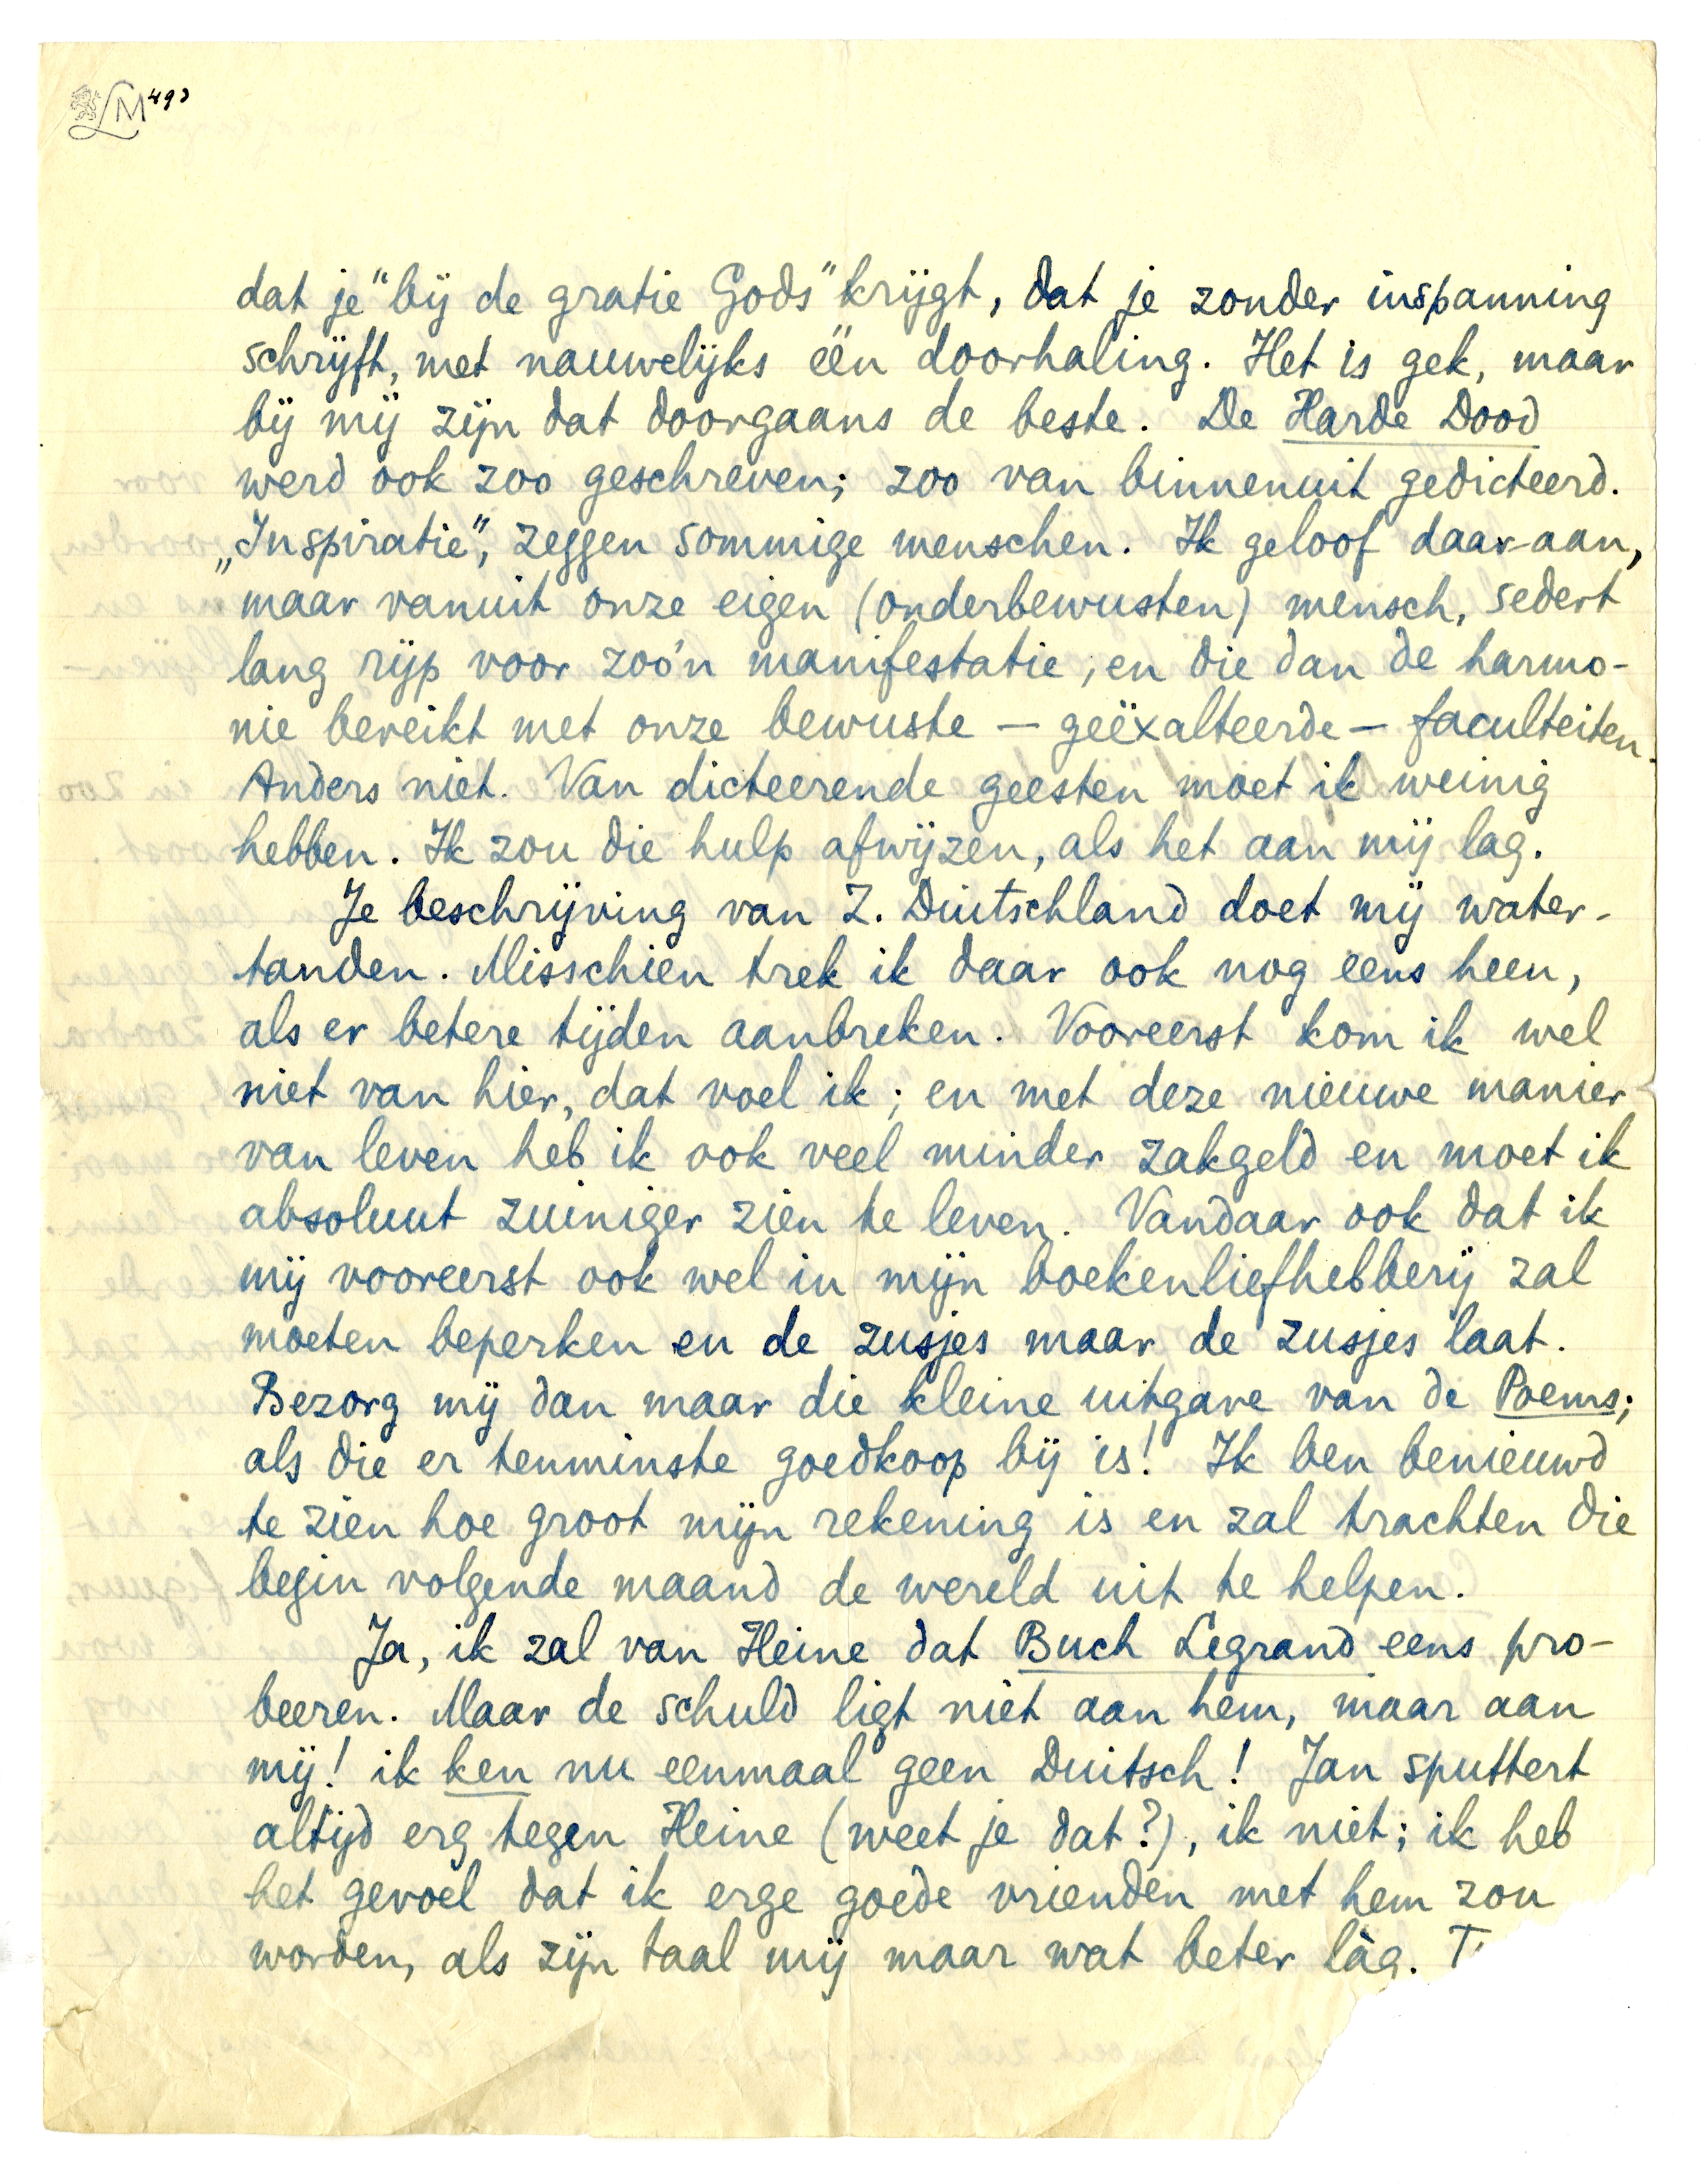 LM 493
dat je "bij de gratie Gods" krijgt, dat je zonder inspanning
schrijft, met nauwelijks één doorhaling. Het is gek, maar
bij mij zijn dat doorgaans de beste. De Harde Dood
werd ook zoo geschreven; zoo van binnenuit gedicteerd.
„Inspiratie", zeggen sommige menschen. Ik geloof daar-aan,
maar vanuit onze eigen (onderbewusten) mensch, sedert
lang rijp voor zoo'n manifestatie, en die dan de harmo-
nie bereikt met onze bewuste — geëxalteerde — faculteiten.
Anders niet. Van dicteerende geesten moet ik weinig
hebben. Ik zou die hulp afwijzen, als het aan mij lag.
Je beschrijving van Z. Duitschland doet mij water-
tanden. Misschien trek ik daar ook nog eens heen,
als er betere tijden aanbreken. Vooreerst kom ik wel
niet van hier, dat voel ik; en met deze nieuwe manier
van leven heb ik ook veel minder zakgeld en moet ik
absoluut zuiniger zien te leven. Vandaar ook dat ik
mij vooreerst ook wel in mijn boekenliefhebberij zal
moeten beperken en de zusjes maar de zusjes laat.
Bezorg mij dan maar die kleine uitgave van de Poems;
als die er tenminste goedkoop bij is! Ik ben benieuwd
te zien hoe groot mijn rekening is en zal trachten die
begin volgende maand de wereld uit te helpen.
Ja, ik zal van Heine dat Buch Legrand eens pro-
beeren. Maar de schuld ligt niet aan hem, maar aan
mij! ik ken nu eenmaal geen Duitsch! Jan sputtert
altijd erg tegen Heine (weet je dat?), ik niet; ik heb
het gevoel dat ik erge goede vrienden met hem zou
worden, als zijn taal mij maar wat beter làg.